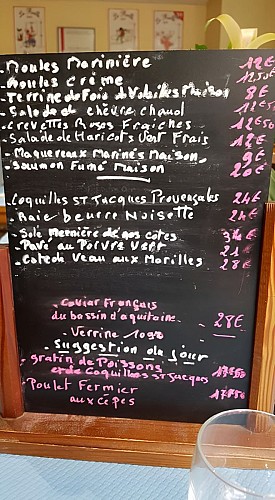 . Moules Marinière 12€
. Moules crème 12,50
. Terrine de Foie de Volailles Maison 8€
. Salade de chèvre chaud 12€50
. Crevettes Roses Fraiches 12€50
. Salade de Haricots Vert Frais 12€
. Maquereaux Marinés Maison 9€
. Saumon Fumé Maison 20€
. Coquilles ST Jacques Provençales 24€
. Raie beurre Noisette 24€
. Sole Meunière de nos cotes
. Pavé au Poivre Vert 21€
. Cote di Veau aux Morilles 28€
. Caviar Français
du bassin d'aquitaine 28€
. Verrine 10gr
. Suggestion du jour
. gratin de Poissons
et de Coquilles ST Jacques 17€50
. Poulet Fermier 17€50
aux Cèpes